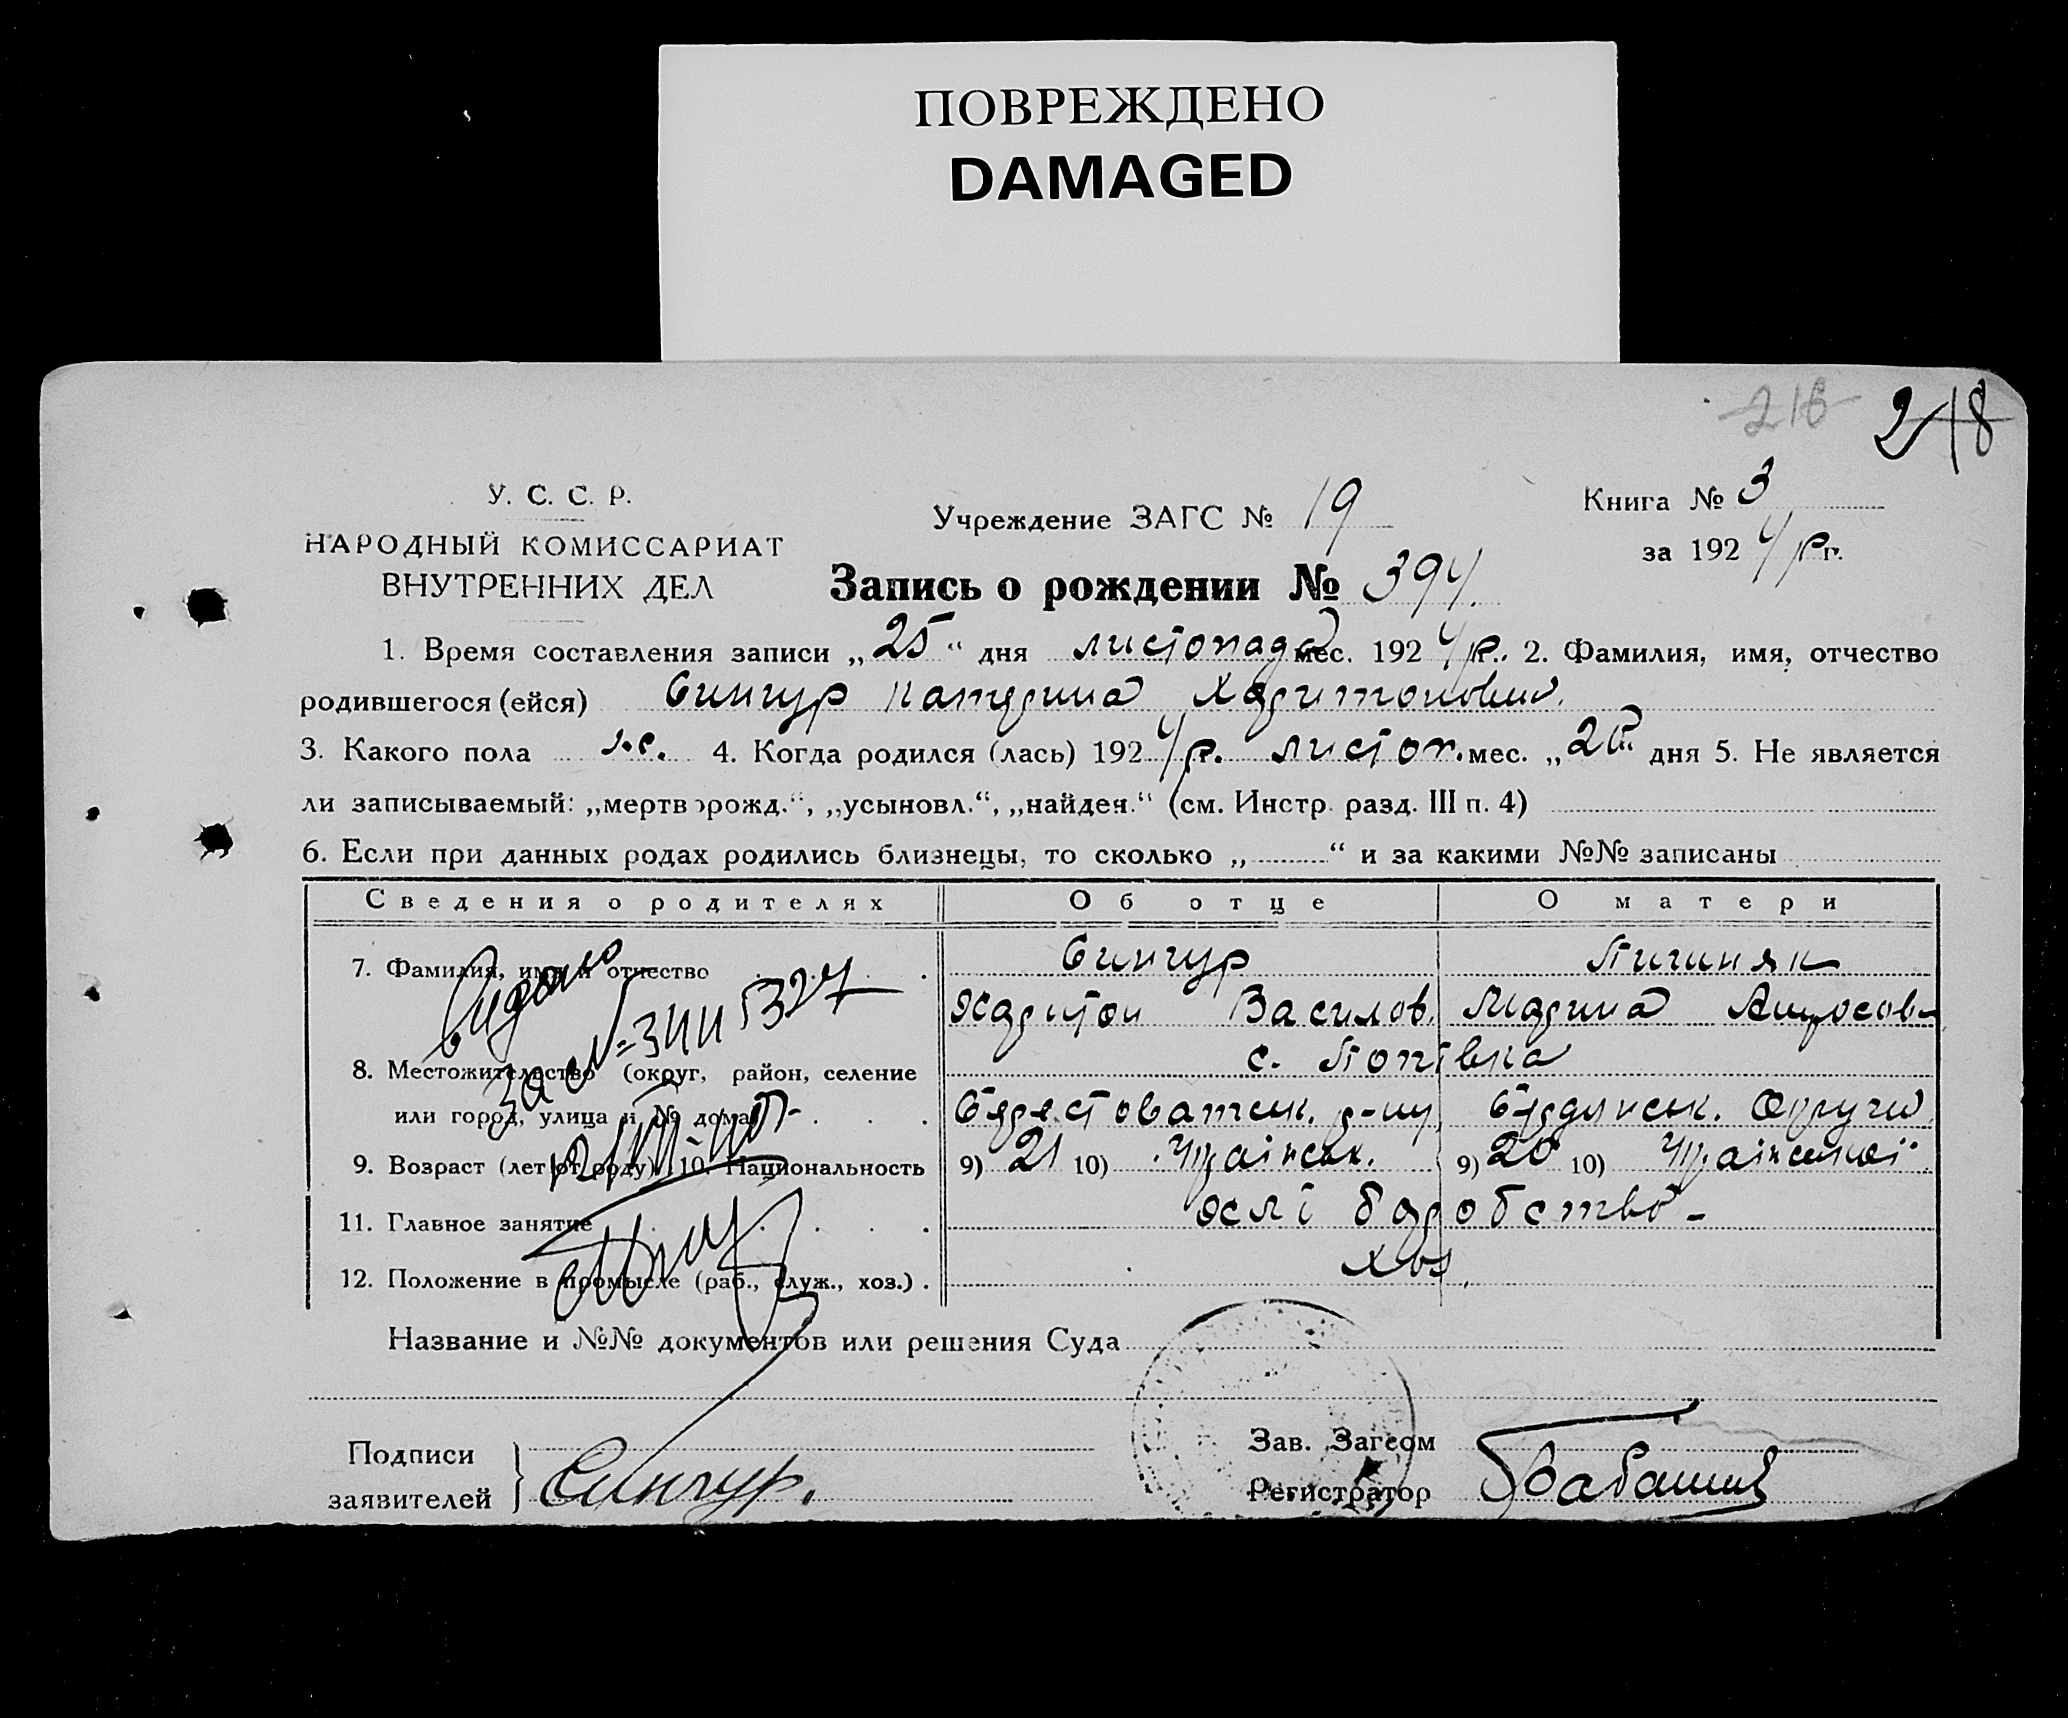 ПОВРЕЖДЕНО
DAMAGED
216 218
У. С. С. Р.
НАРОДНЫЙ КОМИССАРИАТ
ВНУТРЕННИХ ДЕЛ
Учреждение ЗАГС № 19
Книга № 3
за 1924 р г.
Запись о рождении № 394.
1. Время составления записи „25“ дня листопада мес. 1924 р. 2. Фамилия, имя, отчество
родившегося (ейся) Сингур Катерина Харитоновна
3. Какого пола ж. 4. Когда родился (лась) 1924 р. листоп. мес. „20“ дня 5. Не является
ли записываемый: „мертворожд.“, „усыновл.“, „найден.“ (см. Инстр. разд. III п. 4)
6. Если при данных родах родились близнецы, то сколько „ “ и за какими №№ записаны
Сведения о родителях Об отце О матери
7. Фамилия, имя и отчество Сингур
Харитон Василов. Марина Амросов
8. Местожительство (округ, район, селение с. Попівка
или город, улица и № дома Берестоватськ. р-ну, Бердянськ. Округи
9. Возраст (лет от роду) 10. Национальность 9) 21 10) Українськ. 9) 20 10) Української
11. Главное занятие
12. Положение в промысле (раб., служ., хоз.) хоз.
Видано
5327
Название и №№ документов или решения Суда
Подписи
заявителей Сингур.
Зав. Загсом
Регистратор